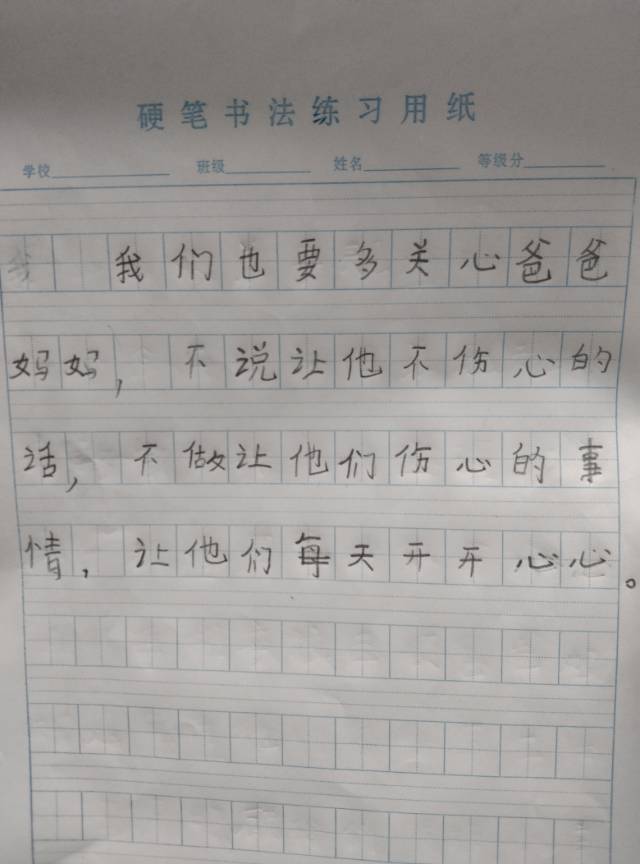 硬笔书法练习用纸
学校 班级 姓名 等级分
我们也要多关心爸爸
妈妈，不说让他不伤心的
话，不做让他们伤心的事
情，让他们每天开开心心。